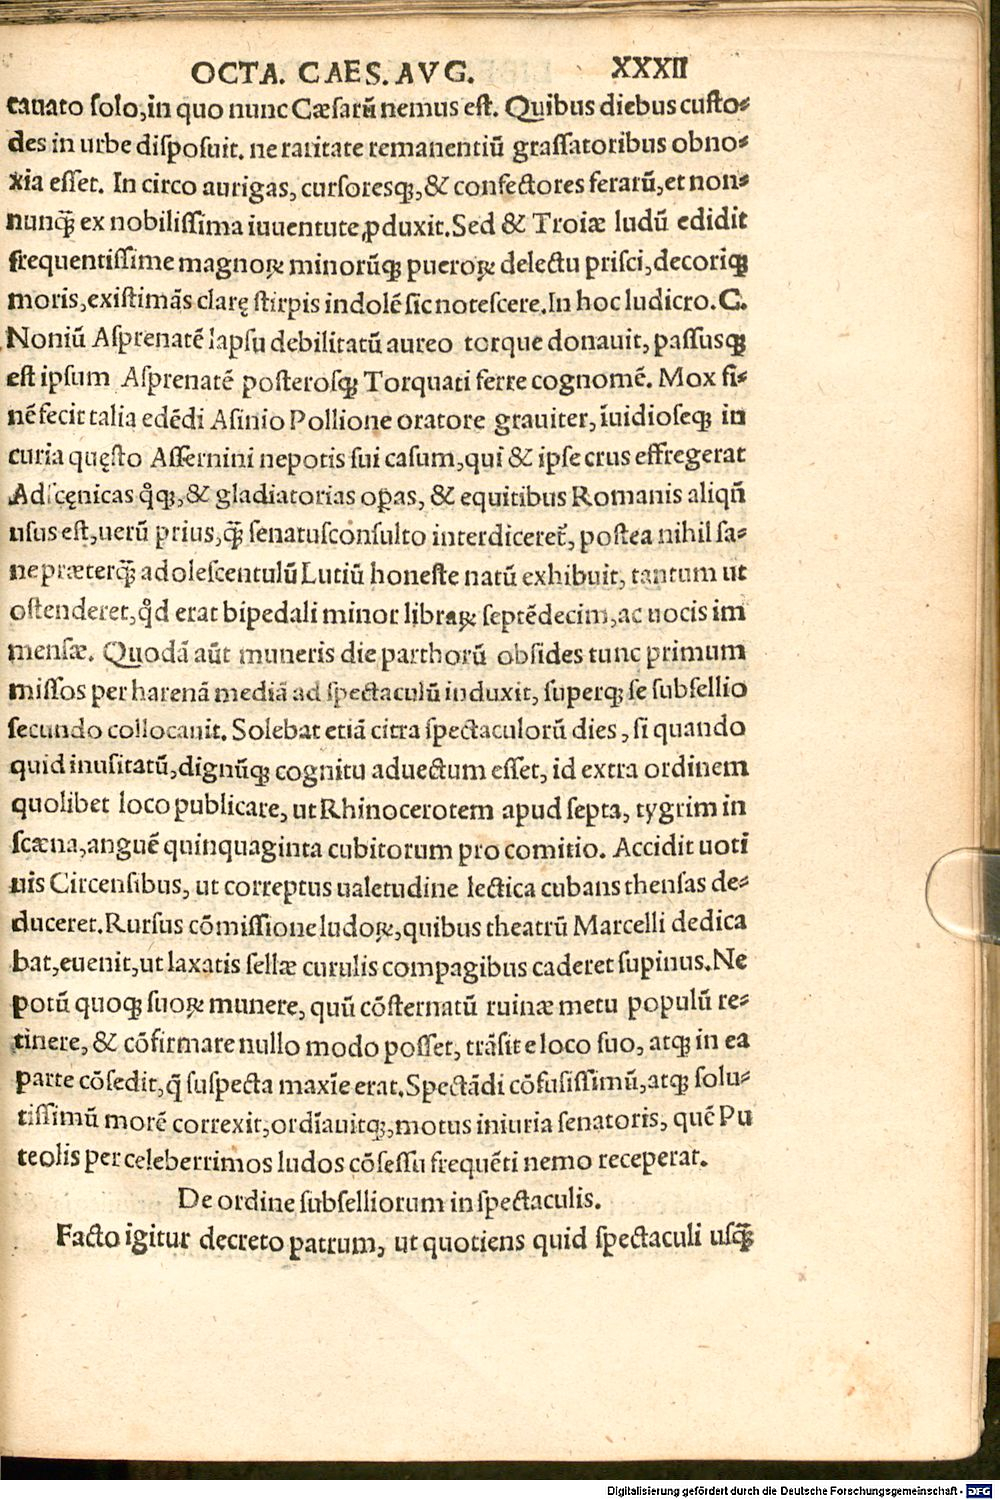 OCTA. CAES. AVG. XXXII
cauato solo, in quo nunc Cæsarū nemus est. Quibus diebus custo-
des in urbe disposuit. ne raritate remanentiū grassatoribus obno-
xia esset. In circo aurigas, cursoresq;, & confectores ferarū, et non-
nunq̃ ex nobilissima iuuentute ꝓduxit. Sed & Troiæ ludū edidit
frequentissime magnoꝝ minorūq; pueroꝝ delectu prisci, decoriq;
moris, existimãs clarę stirpis indolē sic notescere. In hoc ludicro. C.
Noniū Asprenatē lapsu debilitatū aureo torque donauit, passusq;
est ipsum Asprenatē posterosq; Torquati ferre cognomē. Mox fi-
nē fecit talia edēdi Asinio Pollione oratore grauiter, īuidioseq; in
curia quęsto Assernini nepotis sui casum, qui & ipse crus effregerat
Ad scęnicas q̊q;, & gladiatorias oꝑas, & equitibus Romanis aliqñ
usus est, uerū prius, q̃ senatusconsulto interdiceret̃, postea nihil sa-
ne præterq̃ adolescentulū Lutiū honeste natū exhibuit, tantum ut
ostenderet, q̊d erat bipedali minor libraꝝ septēdecim, ac uocis im
mensæ. Quodā aūt muneris die parthorū obsides tunc primum
missos per harenā mediā ad spectaculū induxit, superq; se subsellio
secundo collocauit. Solebat etiā citra spectaculorū dies, si quando
quid inusitatū, dignūq; cognitu aduectum esset, id extra ordinem
quolibet loco publicare, ut Rhinocerotem apud septa, tygrim in
scæna, anguē quinquaginta cubitorum pro comitio. Accidit uoti
uis Circensibus, ut correptus ualetudine lectica cubans thensas de-
duceret. Rursus cōmissione ludoꝝ, quibus theatrū Marcelli dedica
bat, euenit, ut laxatis sellæ curulis compagibus caderet supinus. Ne
potū quoq; suoꝝ munere, quū cōsternatū ruinæ metu populū re-
tinere, & cōfirmare nullo modo posset, trãsit e loco suo, atq; in ea
parte cōsedit, q̃ suspecta maxīe erat. Spectãdi cōfusissimū, atq; solu-
tissimū morē correxit, ordīauitq;, motus iniuria senatoris, quē Pu
teolis per celeberrimos ludos cōsessu frequēti nemo receperat.
De ordine subselliorum in spectaculis.
Facto igitur decreto patrum, ut quotiens quid spectaculi usq̃
Digitalisierung gefördert durch die Deutsche Forschungsgemeinschaft - DFG